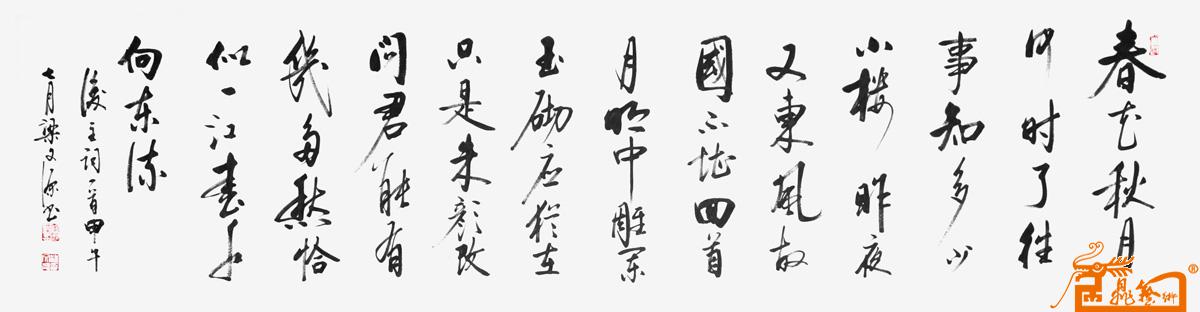 春花秋月
何时了往
事知多少
小楼昨夜
又東風故
國不堪回首
月明中雕阑
玉砌应犹在
只是朱颜改
問君能有
幾多愁恰
似一江春水
向东流
後主词一首甲午
七月梁文源书